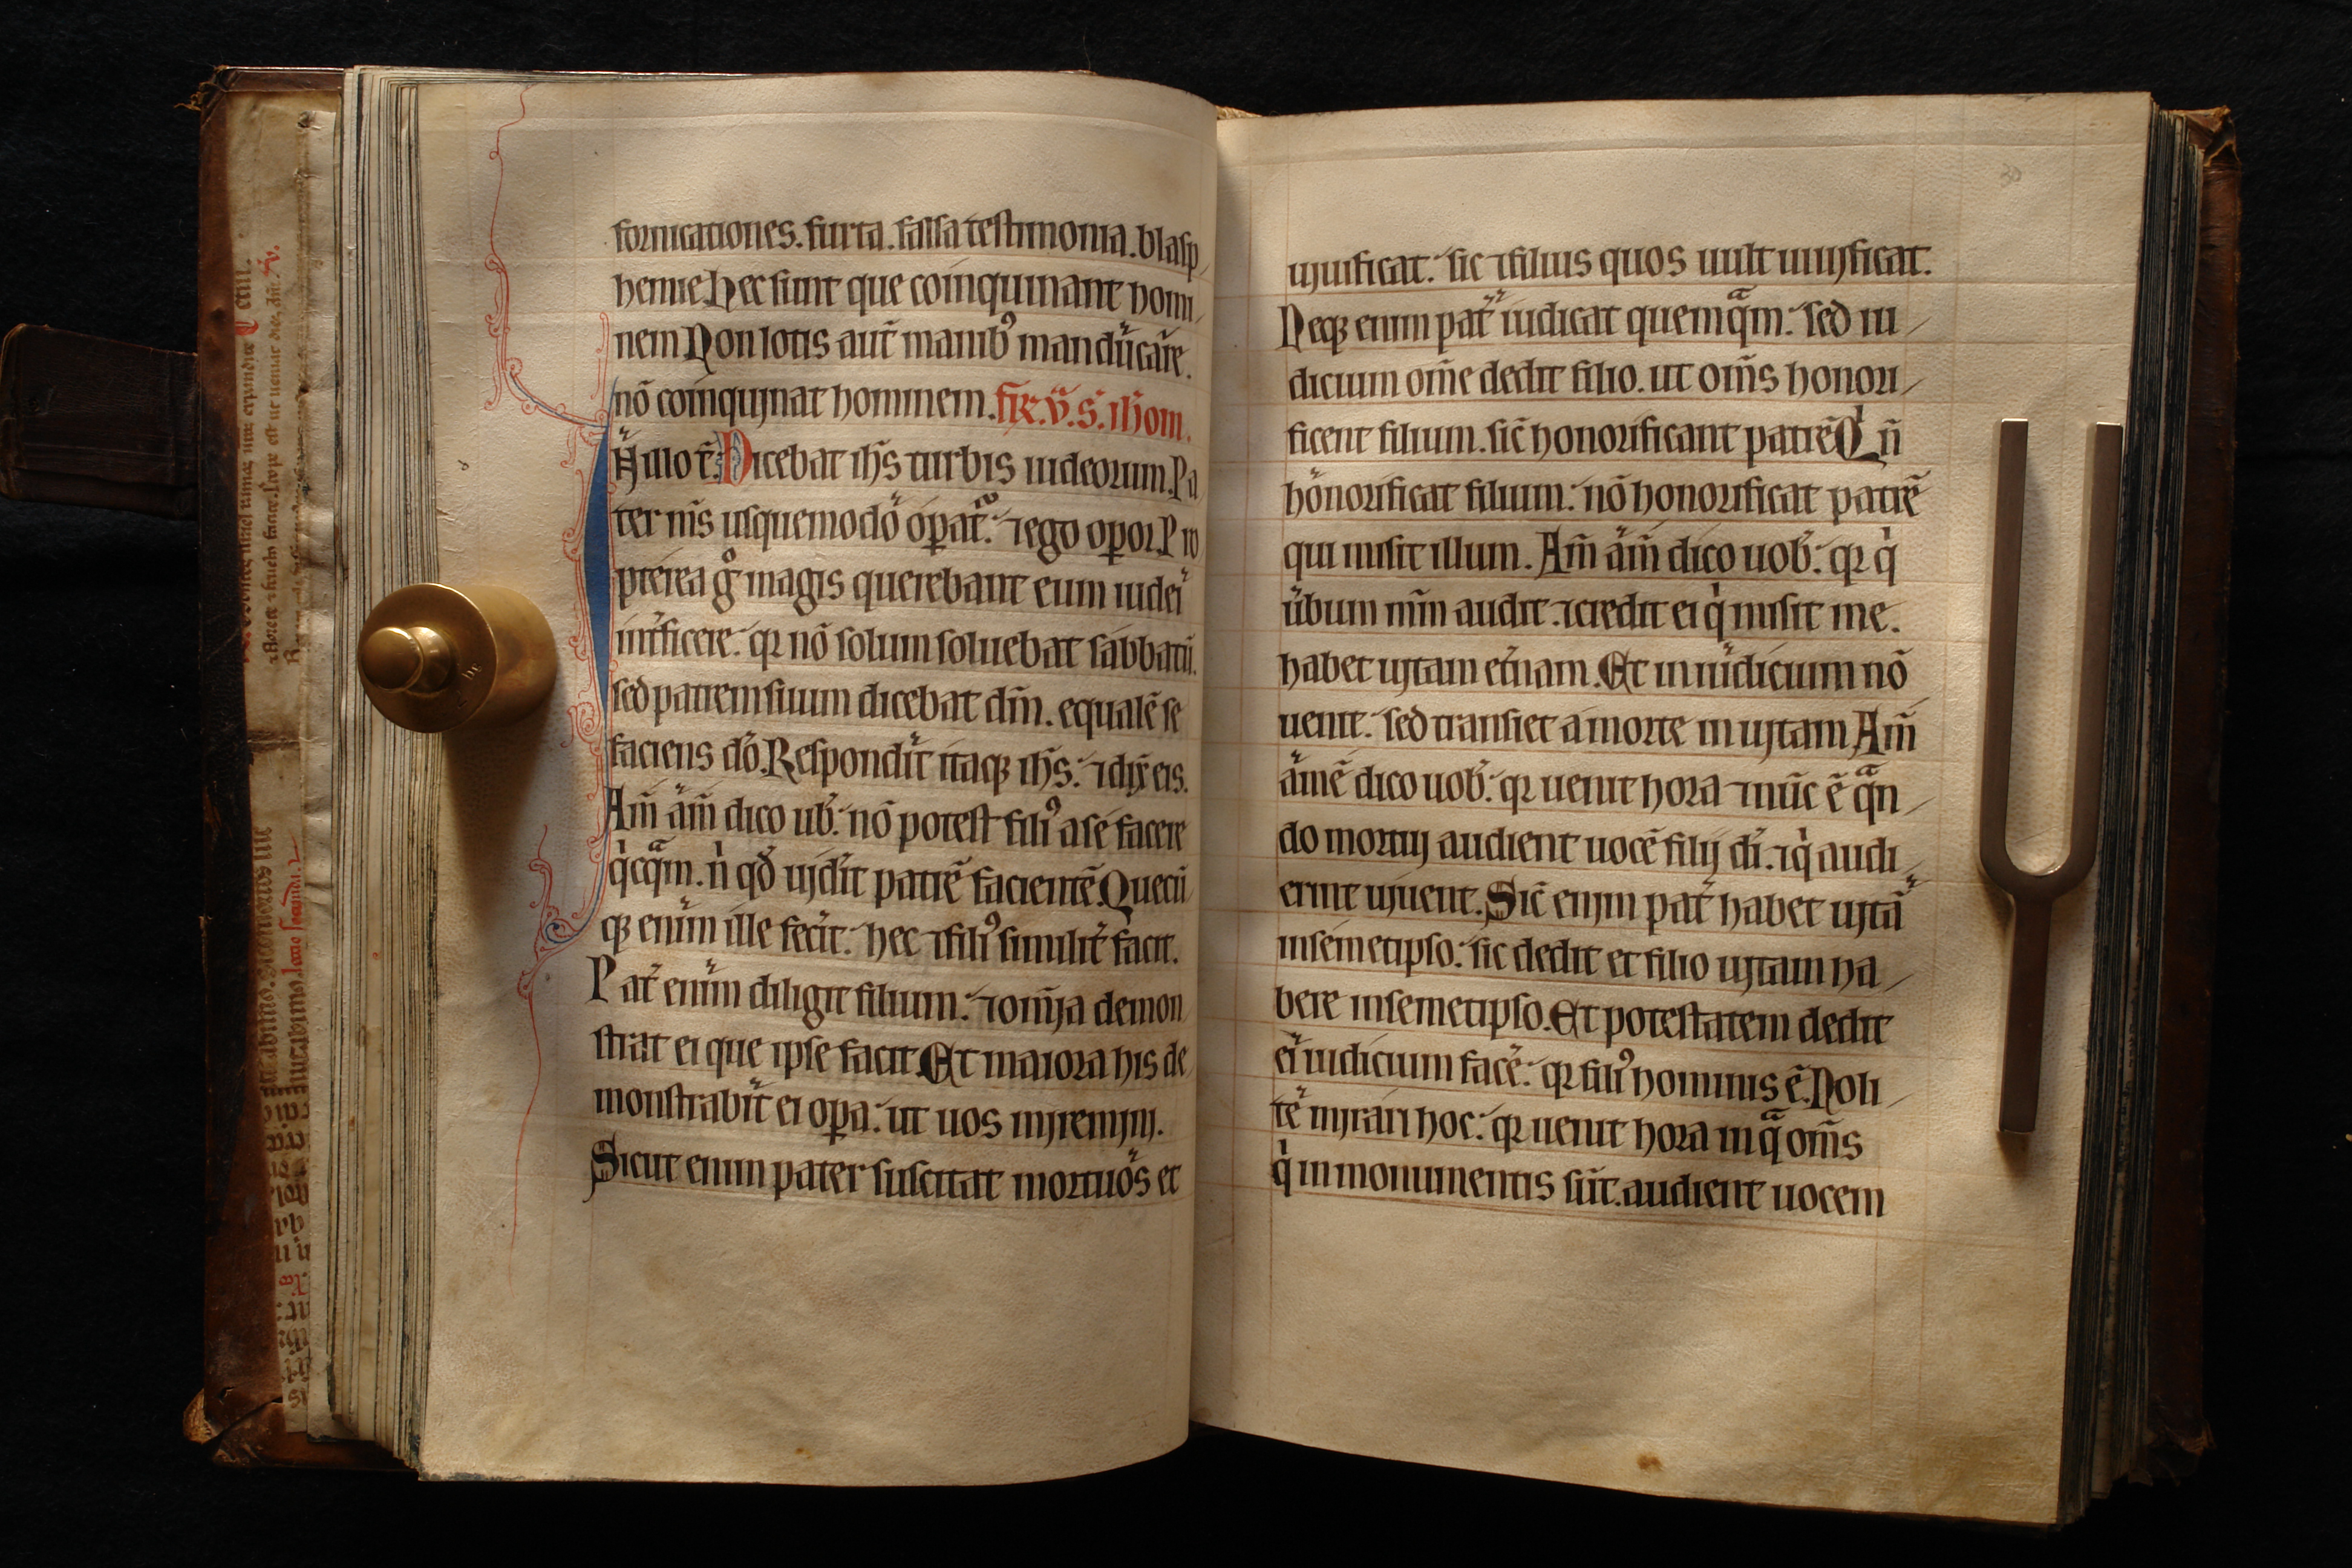 fornicationes. furta. falsa testimonia. blasp
hemie. Hec sunt que coinquinant homi
nem Non lotis aut̃ manibꝰ manducare.
nõ coinquinat hominem. fr̃. v̄. s̃. ioh̃om.
In illo t̃. Dicebat ih̃s turbis iudeorum. Pa
ter nr̃s usquemodo oꝑat̃. ⁊ ego oꝑor. Pro
pterea gͦ magis querebant eum iudei
int̃ficere. qꝛ nõ solum soluebat sabbatũ.
sed patrem suum dicebat dm̃. equalẽ se
faciens dõ. Respondit itaqꝫ ih̃s. ⁊ dix̃ eis.
Am̃ am̃ dico ub̃. nõ potest filiꝰ a se facere
qͥcqᷓm. nͥ qď uid̃it patrẽ facientẽ. Quecũ
qꝫ enim ille fec̃it. hec ⁊ filiꝰ similit̃ facit.
Pat̃ enim diligit filium. ⁊ om̃ia demon
strat ei que ipse facit. Et maiora his de
monstrabit ei oꝑa. ut uos miremini.
Sicut enim pater suscitat mortuos et
30
uiuificat. sic ⁊ filius quos uult uiuificat.
Neqꝫ enim pat̃ iudicat quemqᷓm. sed iu
dicium om̃e dedit filio. ut om̃s honori
ficent filium. sic̃ honorificant patrẽ. Qͥ ñ
honorificat filium. nõ honorificat patrẽ
qui misit illum. Am̃ am̃ dico uob̃. qꝛ qͥ
ũbum mm̃ audit. ⁊ credit ei qͥ misit me.
habet uitam et̃nam. Et in iudicium nõ
uenit. sed transiet a morte in uitam Am̃
amẽ dico uob̃. qꝛ uenit hora ⁊ nũc ẽ qᷓn
do mortui audient uocẽ filij di̇̃. ⁊ qͥ audi
erint uiuent. Sic̃ enim pat̃ habet uitã
insemetipso. sic dedit et filio uitam ha
bere insemetipso. Et potestatem dedit
ei iudicium facẽ. qꝛ filiꝰ hominis ẽ. Noli
te mirari hoc. qꝛ uenit hora in qᷓ om̃s
qͥ in monumentis sũt. audient uocem